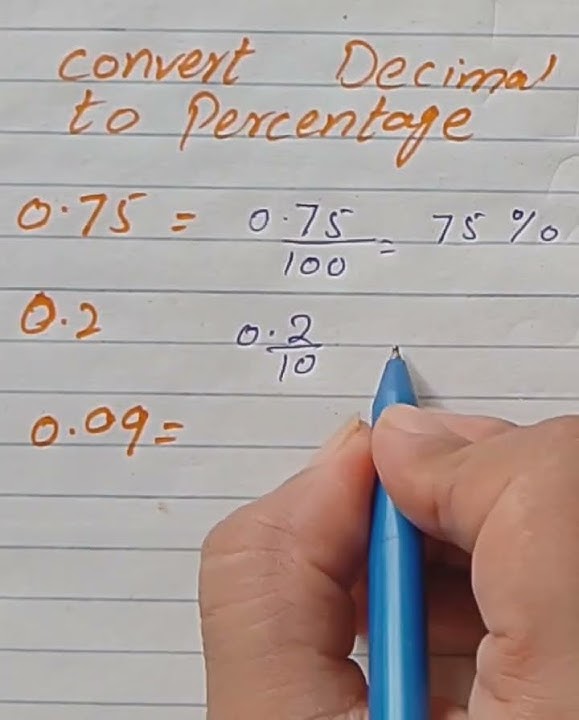 convert Decimal
to Percentage
0.75 = 0.75/100 = 75 %
0.2 0.2/10
0.09=